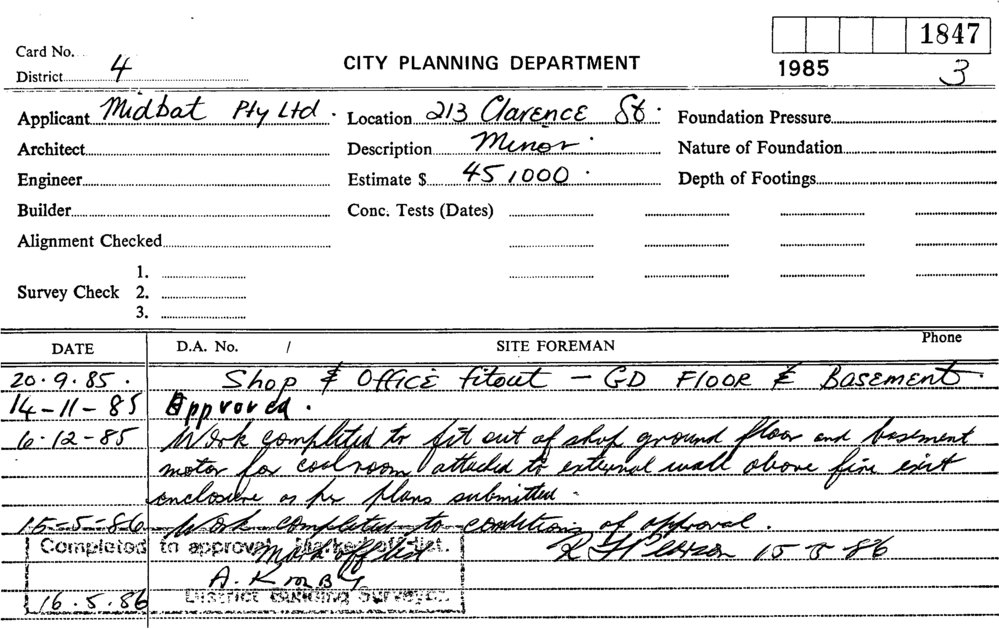 Card No.
1847
District 4
CITY PLANNING DEPARTMENT
1985 3
Applicant Midbat Pty Ltd. Location 213 Clarence St. Foundation Pressure
Architect Description Minor. Nature of Foundation
Engineer Estimate $ 45,000. Depth of Footings
Builder Conc. Tests (Dates)
Alignment Checked
1.
Survey Check 2.
3.
DATE D.A. No. / SITE FOREMAN Phone
20.9.85. Shop & Office fitout — GD Floor & Basement.
14-11-85 Approved.
6.12-85 Work completed to fit out of shop ground floor and basement
motor for coolroom attached to external wall above fire exit
enclosure as per plans submitted.
15-5-86 Work completed to conditions of approval.
Completed to approval. Marked off list.
Mark off list 15 5 86
A. Kirby
16.5.86 District Building Surveyor.